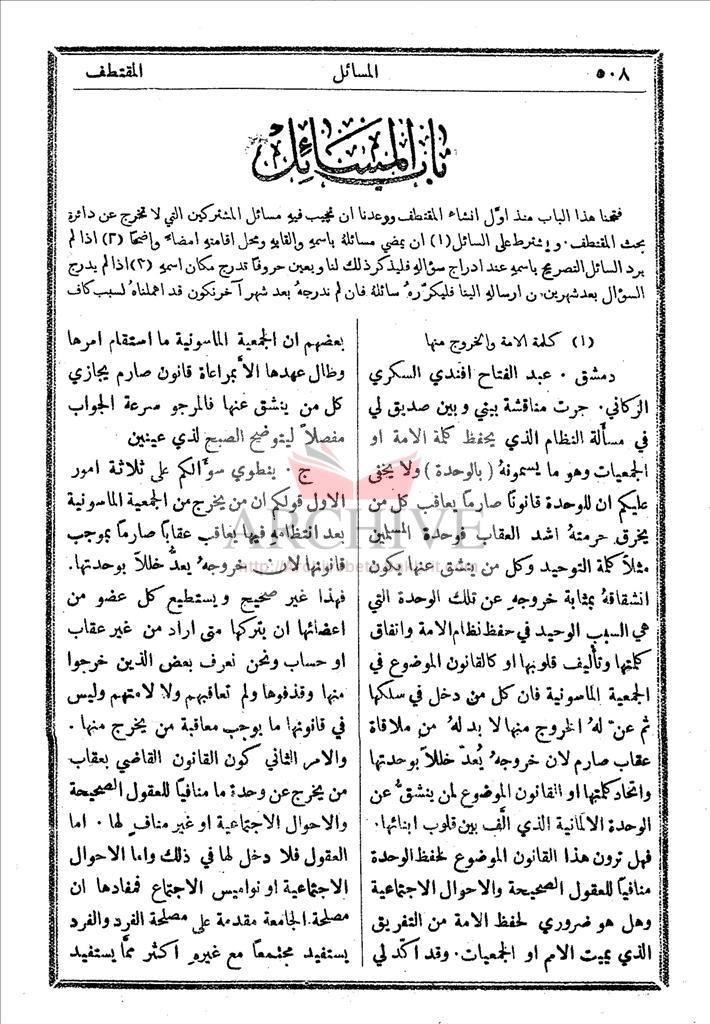 ٥٠٨
المسائل
المقتطف
باب المسائل
فتحنا هذا الباب منذ اول انشاء المقتطف ووعدنا ان نجيب فيهِ مسائل المشتركين التي لا تخرج عن دائرة
بحث المقتطف. ويشترط على السائل (١) ان يمضي مسائلهُ باسمهِ والقابهِ ومحل اقامتهِ امضاءً واضحًا (٢) اذا لم
يرد السائل التصريح باسمهِ عند ادراج سؤالهِ فليذكر ذلك لنا ويعين حروفًا تدرج مكان اسمهِ (٣) اذا لم يدرج
السؤال بعد شهرين من ارسالهِ الينا فليكررهُ سائلهُ فان لم ندرجهُ بعد شهر آخر نكون قد اهملناهُ لسبب كاف
(١) كلمة الامة والخروج منها
دمشق. عبد الفتاح افندي السكري
الزكاني. جرت مناقشة بيني وبين صديق لي
في مسألة النظام الذي يحفظ كلمة الامة او
الجمعيات وهو ما يسمونهُ (بالوحدة) ولا يخفى
عليكم ان للوحدة قانونًا صارمًا يعاقب كل من
يخرق حرمتهُ اشد العقاب فوحدة المسلمين
مثلاً كلمة التوحيد وكل من ينشق عنها يكون
انشقاقهُ بمثابة خروجهِ عن تلك الوحدة التي
هي السبب الوحيد في حفظ نظام الامة واتفاق
كلمتها وتأليف قلوبها او كالقانون الموضوع في
الجمعية الماسونية فان كل من دخل في سلكها
ثم عنّ لهُ الخروج منها لا بد لهُ من ملاقاة
عقاب صارم لان خروجهُ يُعدّ خللاً بوحدتها
واتحاد كلمتها او القانون الموضوع لمن ينشقُّ عن
الوحدة الالمانية الذي الَّف بين قلوب ابنائها.
فهل ترون هذا القانون الموضوع لحفظ الوحدة
منافيًا للعقول الصحيحة والاحوال الاجتماعية
وهل هو ضروري لحفظ الامة من التفريق
الذي يميت الامم او الجمعيات. وقد اكّد لي
بعضهم ان الجمعية الماسونية ما استقام امرها
وطال عهدها الاَّ بمراعاة قانون صارم يجازي
كل من ينشق عنها فالمرجو سرعة الجواب
مفصلاً ليتوضح الصبح لذي عينين
ج. ينطوي سوآلكم على ثلاثة امور
الاول قولكم ان من يخرج من الجمعية الماسونية
بعد انتظامهِ فيها يعاقب عقابًا صارمًا بموجب
قانونها لان خروجهُ يعدُّ خللاً بوحدتها.
فهذا غير صحيح ويستطيع كل عضو من
اعضائها ان يتركها متى اراد من غير عقاب
او حساب ونحن نعرف بعض الذين خرجوا
منها وقذفوها ولم تعاقبهم ولا لامتهم وليس
في قانونها ما يوجب معاقبة من يخرج منها.
والامر الثاني كون القانون القاضي بعقاب
من يخرج عن وحدة ما منافيًا للعقول الصحيحة
والاحوال الاجتماعية او غير منافٍ لها. اما
العقول فلا دخل لها في ذلك واما الاحوال
الاجتماعية او نواميس الاجتماع فمفادها ان
مصلحة الجامعة مقدمة على مصلحة الفرد والفرد
يستفيد مجتمعًا مع غيرهِ اكثر ممَّا يستفيد
ARCHIVE